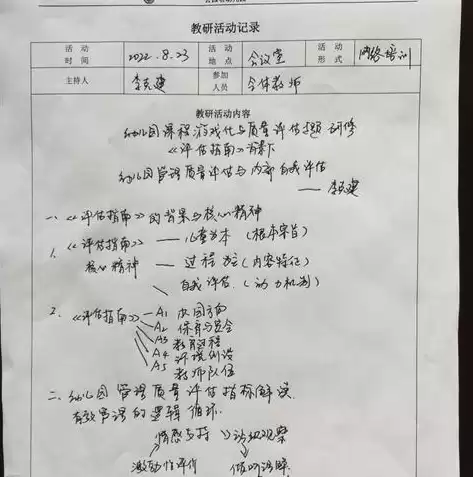 教研活动记录
活动时间 2022.8.23 活动地点 会议室 活动形式 网络培训
主持人 李克建 参加人员 全体教师
教研活动内容
幼儿园课程游戏化与质量评估专题研修
《评估指南》背景下
幼儿园管理质量评估与内部自我评估
——李克建
一、《评估指南》的背景与核心精神
1、《评估指南》——儿童为本（根本宗旨）
核心精神——过程为主（内容特征）
自我评估（动力机制）
2、《评估指南》—A1 办园方向
A2 保育与安全
A3 教育过程
A4 环境创设
A5 教师队伍
二、幼儿园管理质量评估指标解读
有效管理的逻辑循环
情感支持 认知观察
激励性评价 倾听理解